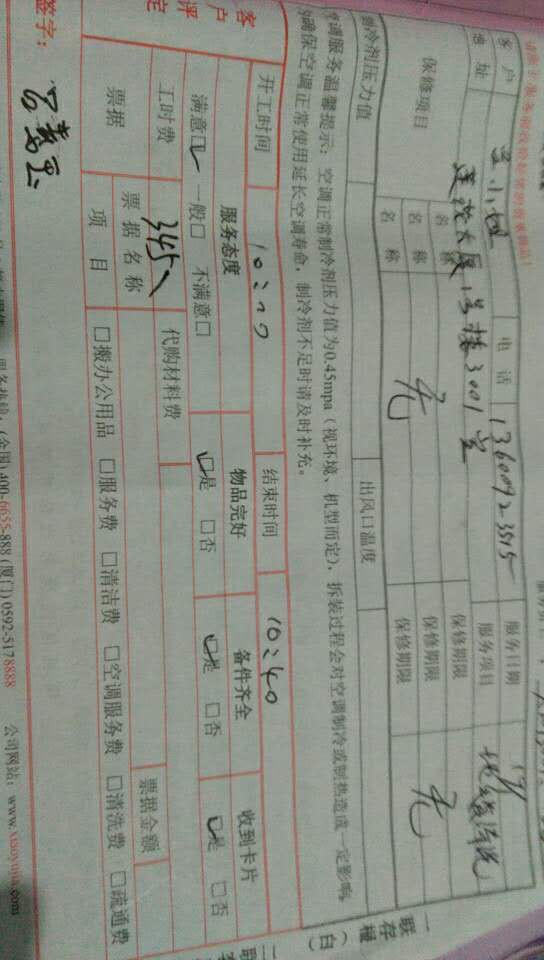 客户
小姐
电话
13600923515
服务日期
地址
莲花大厦1号楼3001室
服务项目
保修项目
名称
无
保修期限
无
名称
保修期限
名称
保修期限
制冷剂压力值
出风口温度
空调服务温馨提示：空调正常制冷剂压力值为0.45mpa（视环境、机型而定），拆装过程会对空调制冷或制热造成一定影响，
为确保空调正常使用延长空调寿命，制冷剂不足时请及时补充。
开工时间
结束时间
10:40
客户评定
服务态度
物品完好
备件齐全
收到卡片
满意□ 一般□ 不满意□
□是 □否
□是 □否
□是 □否
工时费
345
代购材料费
票据
票据名称
票据金额
项目
□搬办公用品 □服务费 □清洁费 □空调服务费 □清洗费 □疏通费
签字：
(全国)400-6655-888 (厦门)0592-5178888
公司网站：www.xiaoyusu.com
一联存根（白）